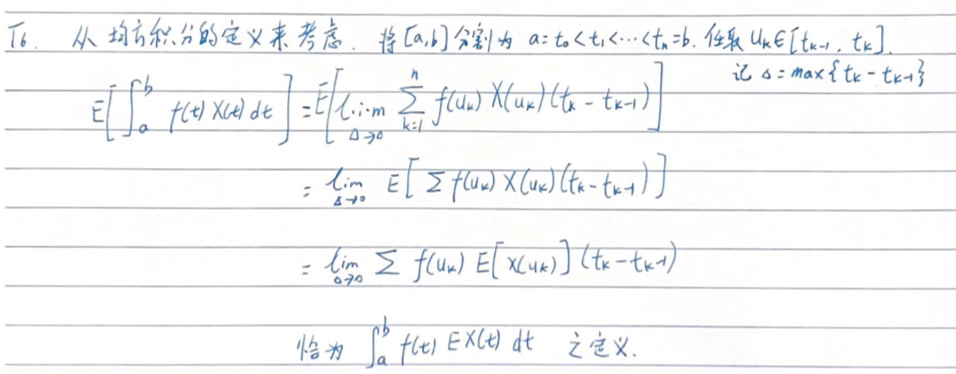 T6. 从均方积分的定义来考虑. 将[a,b]分割为 a=t₀<t₁<⋯<tₙ=b. 任取 uₖ∈[tₖ₋₁, tₖ].
记 Δ=max{tₖ-tₖ₋₁}
E[∫ₐᵇ f(t)X(t)dt] = E[l.i.m_{Δ→0} ∑_{k=1}^{n} f(uₖ)X(uₖ)(tₖ-tₖ₋₁)]
= lim_{Δ→0} E[∑f(uₖ)X(uₖ)(tₖ-tₖ₋₁)]
= lim_{Δ→0} ∑ f(uₖ) E[X(uₖ)] (tₖ-tₖ₋₁)
恰为 ∫ₐᵇ f(t) EX(t) dt 之定义.